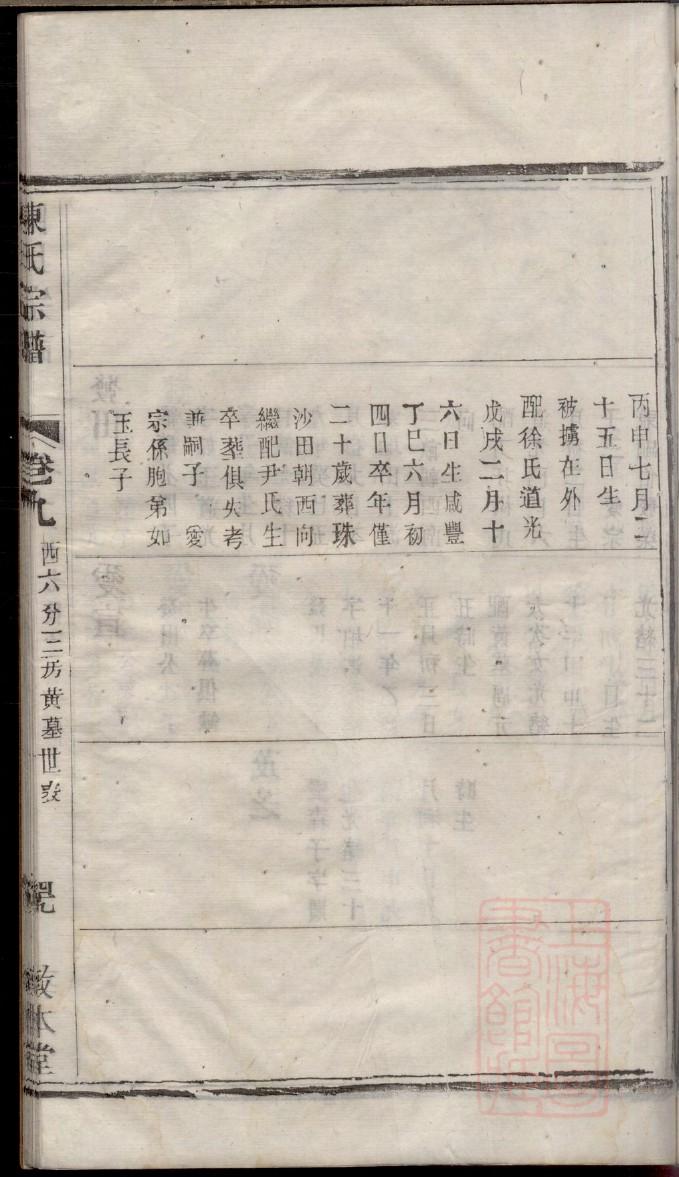 丙申七月二
十五日生
被擄在外
配徐氏道光
戊戌二月十
六日生咸豐
丁巳六月初
四日卒年僅
二十歲葬珠
沙田朝西向
繼配尹氏生
卒葬俱失考
兼嗣子㊝愛
宗係胞弟如
玉長子
陳氏宗譜
卷九
西六分三房黃墓世表
敦本堂
上海圖書館藏